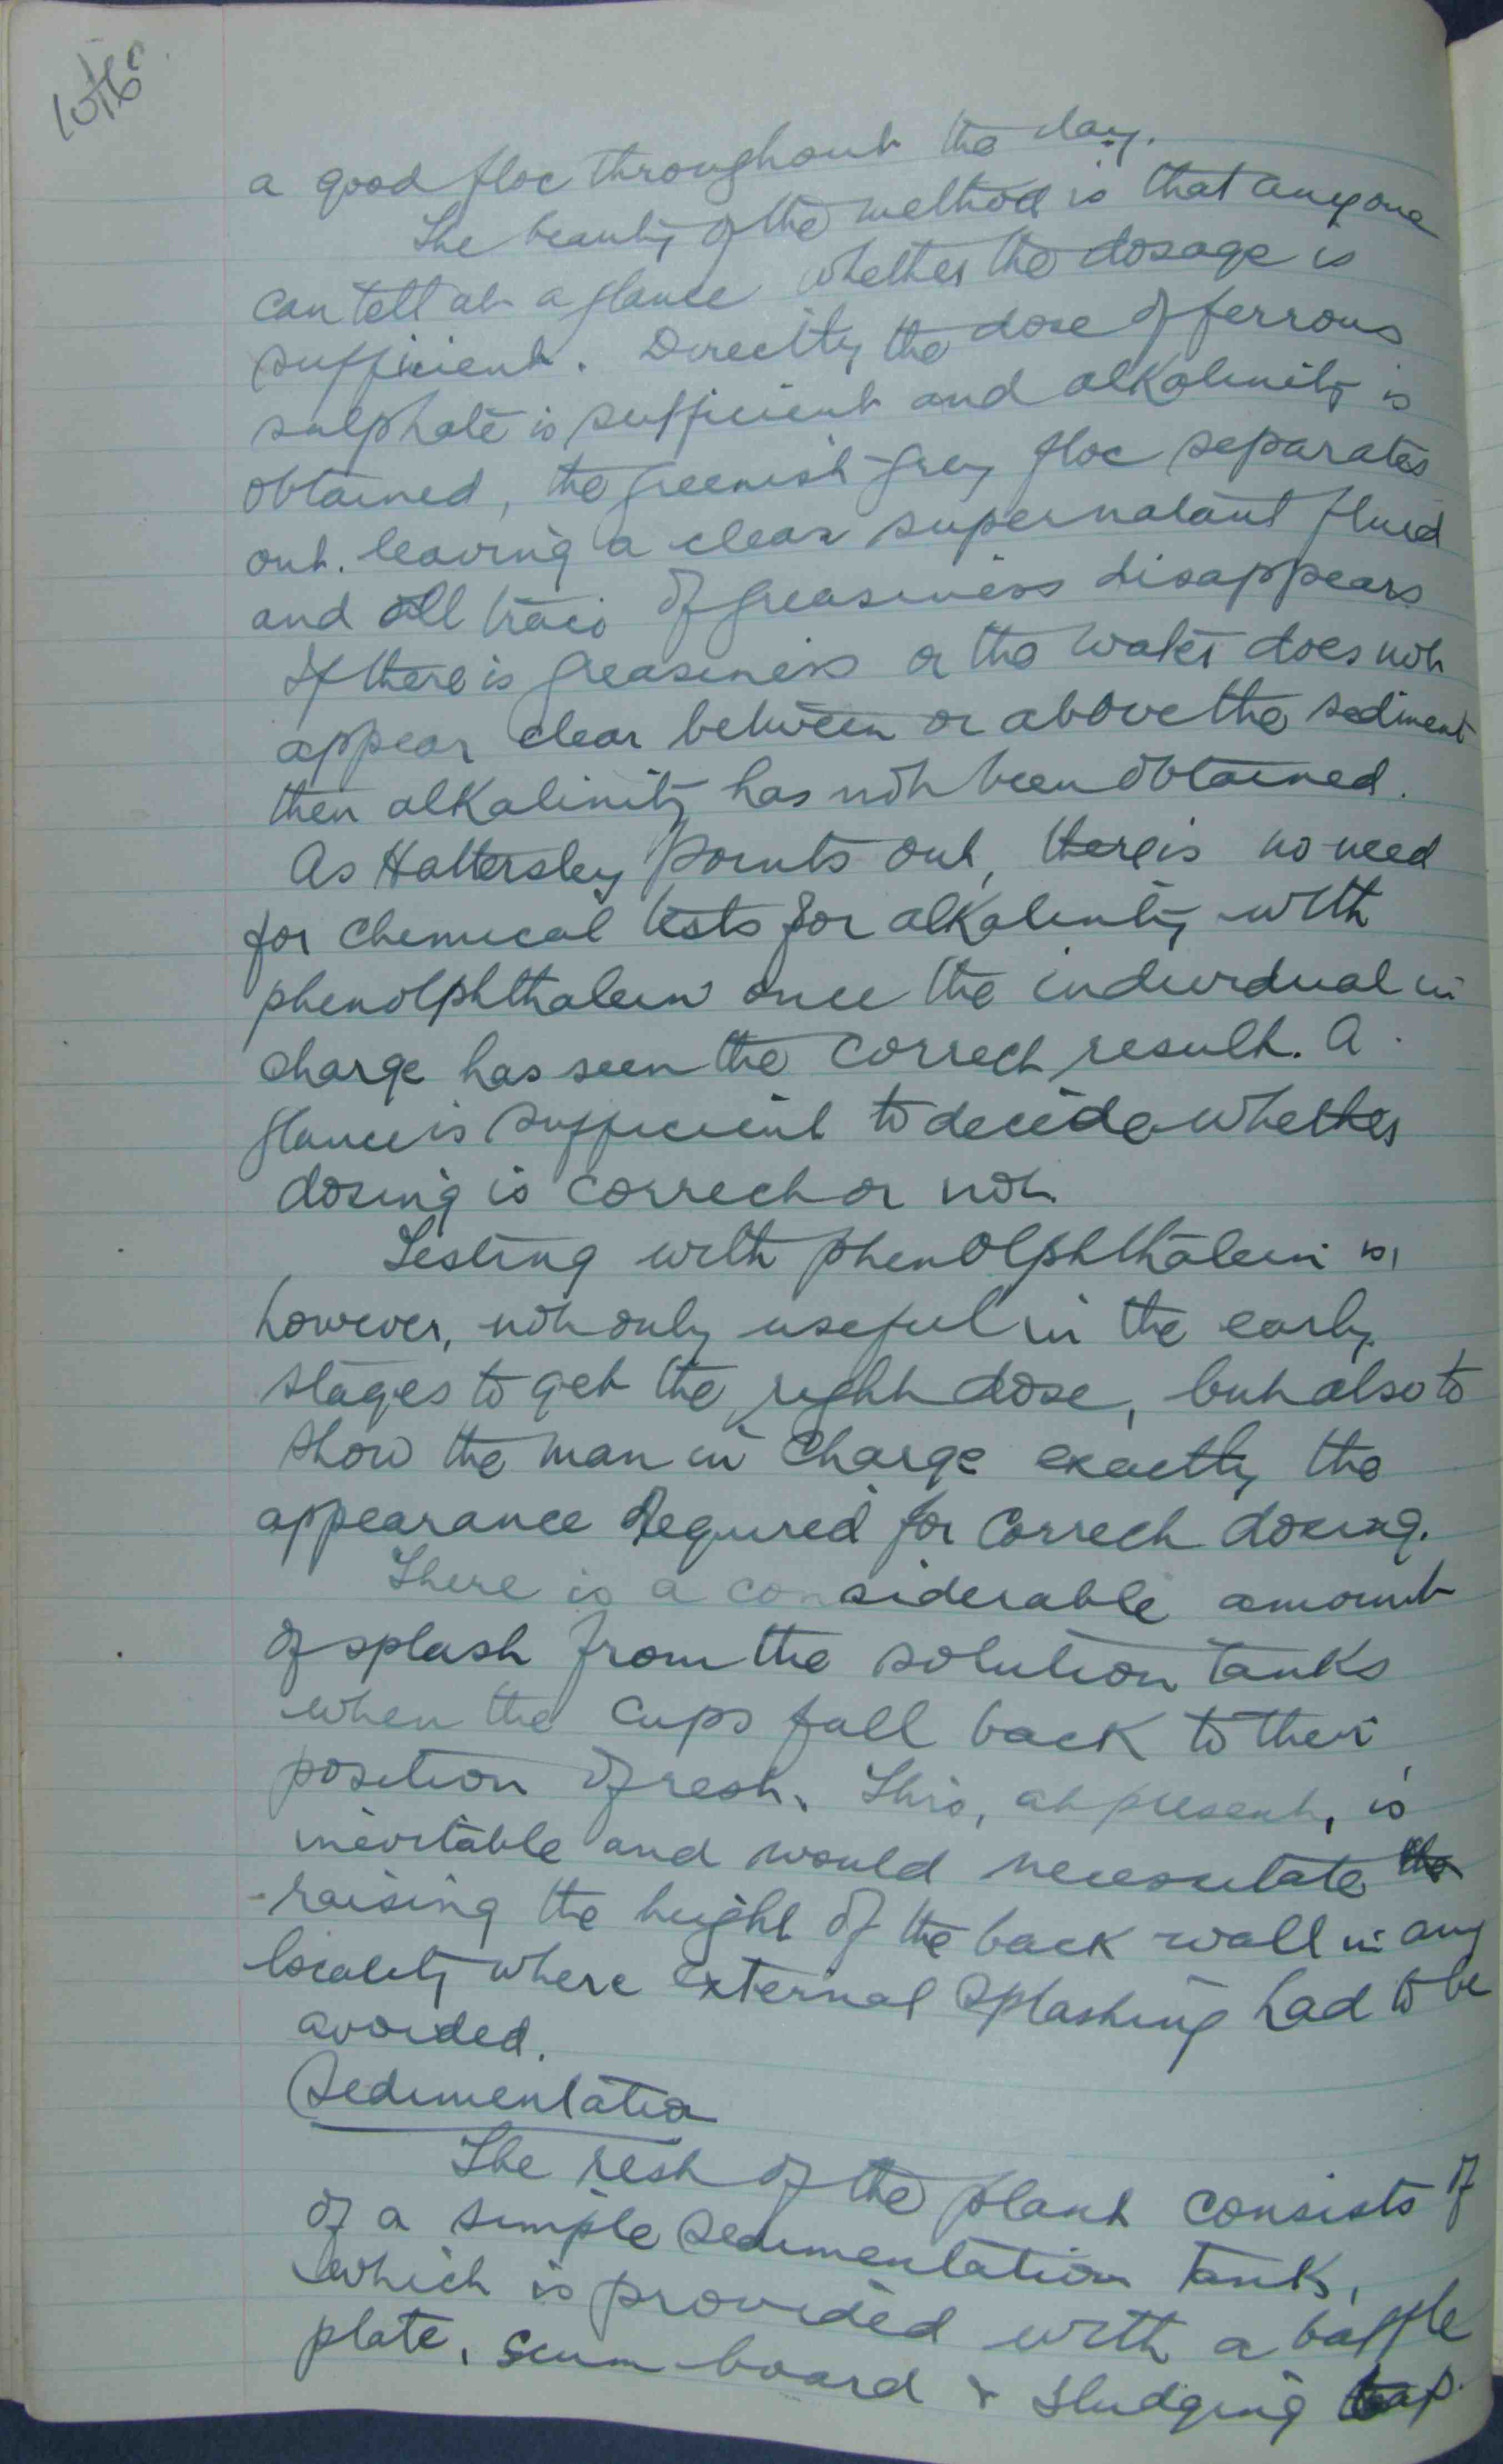 a good floc throughout the day.
The beauty of the method is that anyone
can tell at a glance whether the dosage is
sufficient. Directly the dose of ferrous
sulphate is sufficient and alkalinity is
obtained, the greenish-grey floc separates
out. leaving a clear supernatant fluid
and all trace of greasiness disappears
If there is greasiness or the water does not
appear clear between or above the sediment
then alkalinity has not been obtained.
As Hattersley points out, there is no need
for chemical tests for alkalinity with
phenolphthalein once the individual in
charge has seen the correct result. A
glance is sufficient to decide whether
dosing is correct or not.
Testing with phenolphthalein is,
however, not only useful in the early
stages to get the right dose, but also to
show the man in charge exactly the
appearance required for correct dosing.
There is a considerable amount
of splash from the solution tanks
when the cups fall back to their
position of rest. This, at present, is
inevitable and would necessitate the
raising the height of the back wall in any
locality where external splashing had to be
avoided.
Sedimentation
The rest of the plant consists of
of a simple sedimentation tank,
which is provided with a baffle
plate, scum-board & sludging tap.